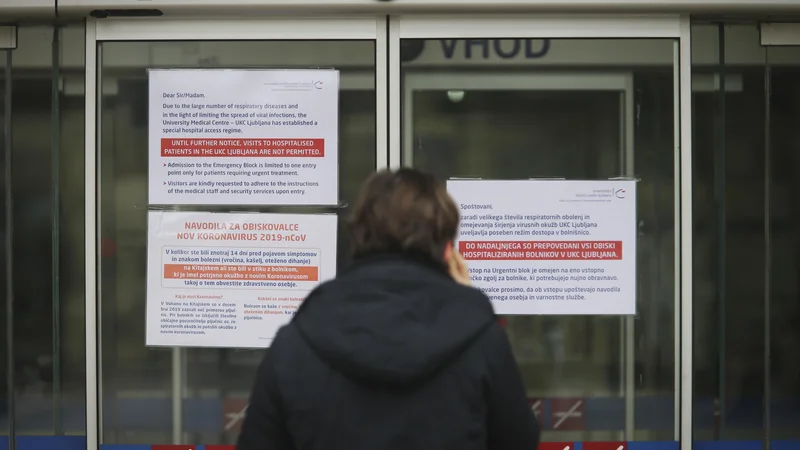 VHOD
Dear Sir/Madam,
Due to the large number of respiratory diseases and
in the light of limiting the spread of viral infections, the
University Medical Centre – UKC Ljubljana has established a
special hospital access regime.
UNTIL FURTHER NOTICE, VISITS TO HOSPITALISED
PATIENTS IN THE UKC LJUBLJANA ARE NOT PERMITTED.
> Admission to the Emergency Block is limited to one entry
point only for patients requiring urgent treatment.
> Visitors are kindly requested to adhere to the instructions
of the medical staff and security services upon entry.
NAVODILA ZA OBISKOVALCE
NOV KORONAVIRUS 2019-nCoV
V kolikor ste bili znotraj 14 dni pred pojavom simptomov
in znakom bolezni (vročina, kašelj, oteženo dihanje)
na Kitajskem ali ste bili v stiku z bolnikom,
ki je imel potrjeno okužbo z novim Koronavirusom
takoj o tem obvestite zdravstveno osebje.
Kaj je novi Koronavirus?
V Vuhanu na Kitajskem so v decem
bru 2019 zaznali
z novim Koronavirusom.
Spoštovani,
zaradi velikega števila respiratornih obolenj in
omejevanja širjenja virusnih okužb UKC Ljubljana
uveljavlja poseben režim dostopa v bolnišnico.
DO NADALJNJEGA SO PREPOVEDANI VSI OBISKI
HOSPITALIZIRANIH BOLNIKOV V UKC LJUBLJANA.
stop na Urgentni blok je omejen na eno vstopno
čko zgolj za bolnike, ki potrebujejo nujno obravnavo.
kovalce prosimo, da ob vstopu upoštevajo navodila
venega osebja in varnostne službe.